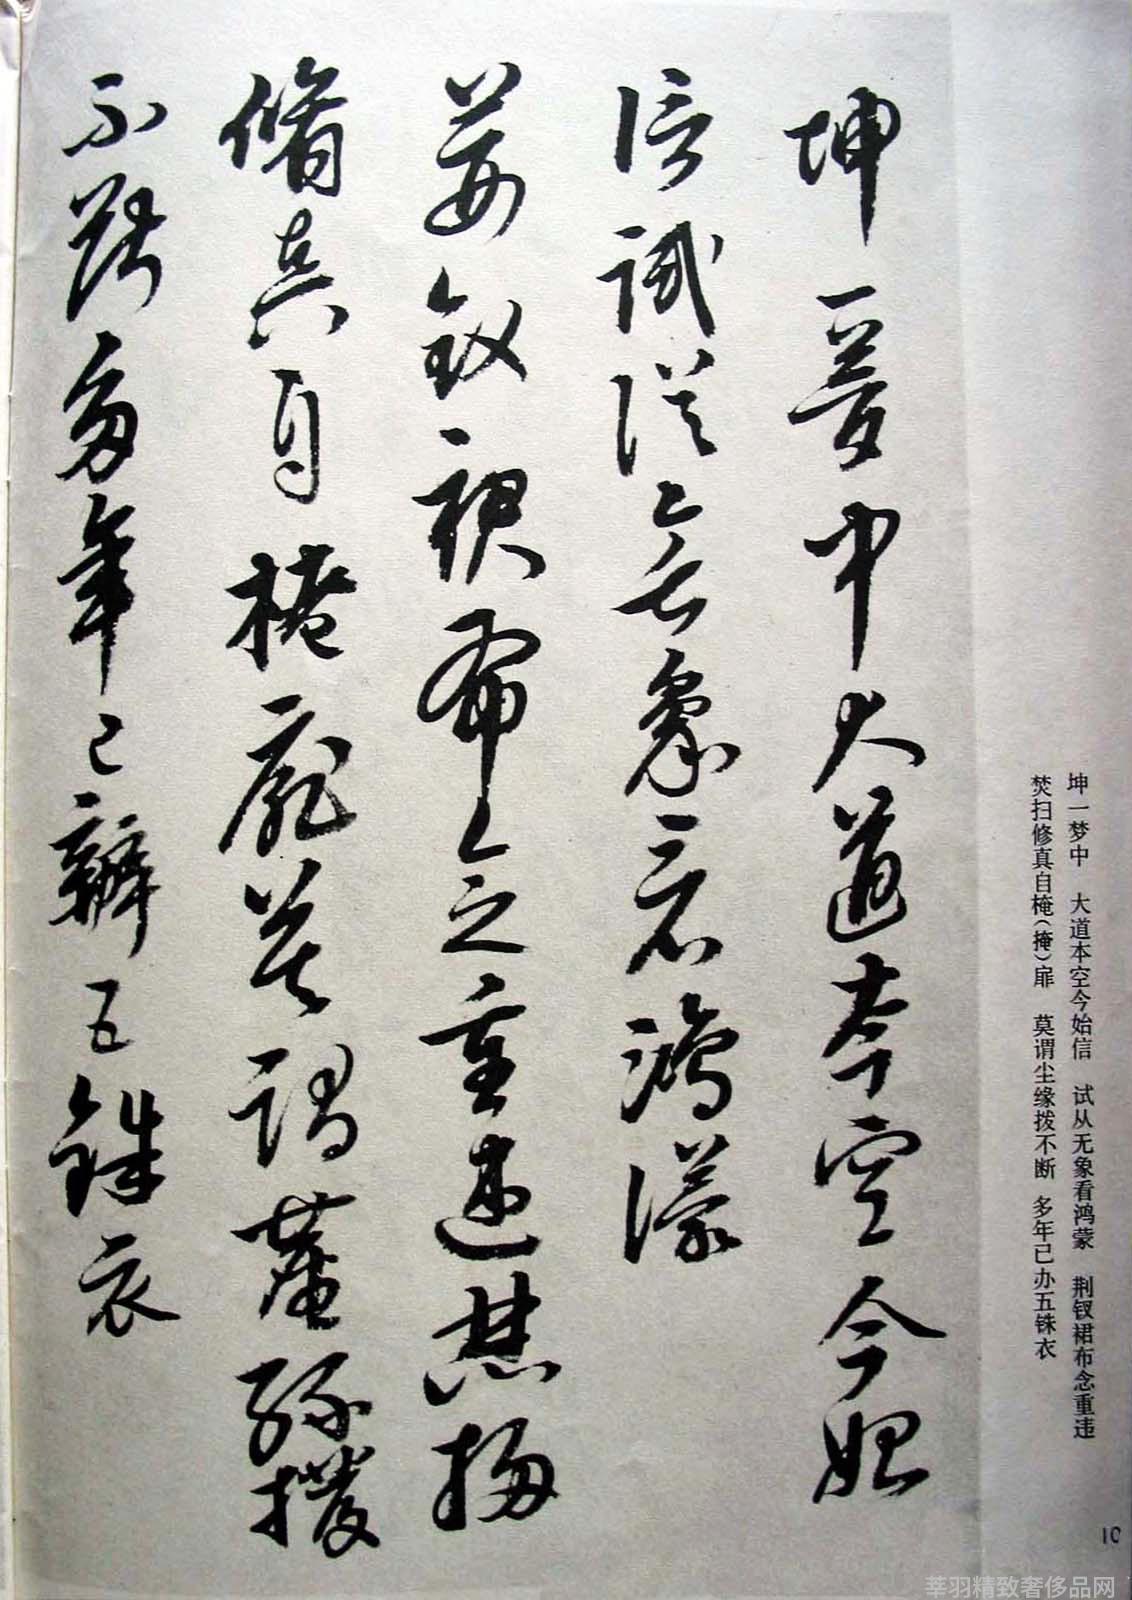 坤一梦中　大道本空今始信　试从无象看鸿蒙　荆钗裙布念重违
焚扫修真自掩（掩）扉　莫谓尘缘拨不断　多年已办五铢衣
坤一夢中大道本空今始
信試從無象看鴻濛
荊釵裙布念重違焚掃
脩真自掩扉莫謂塵緣撥
不斷多年已辦五銖衣
10
莘羽精致奢侈品网